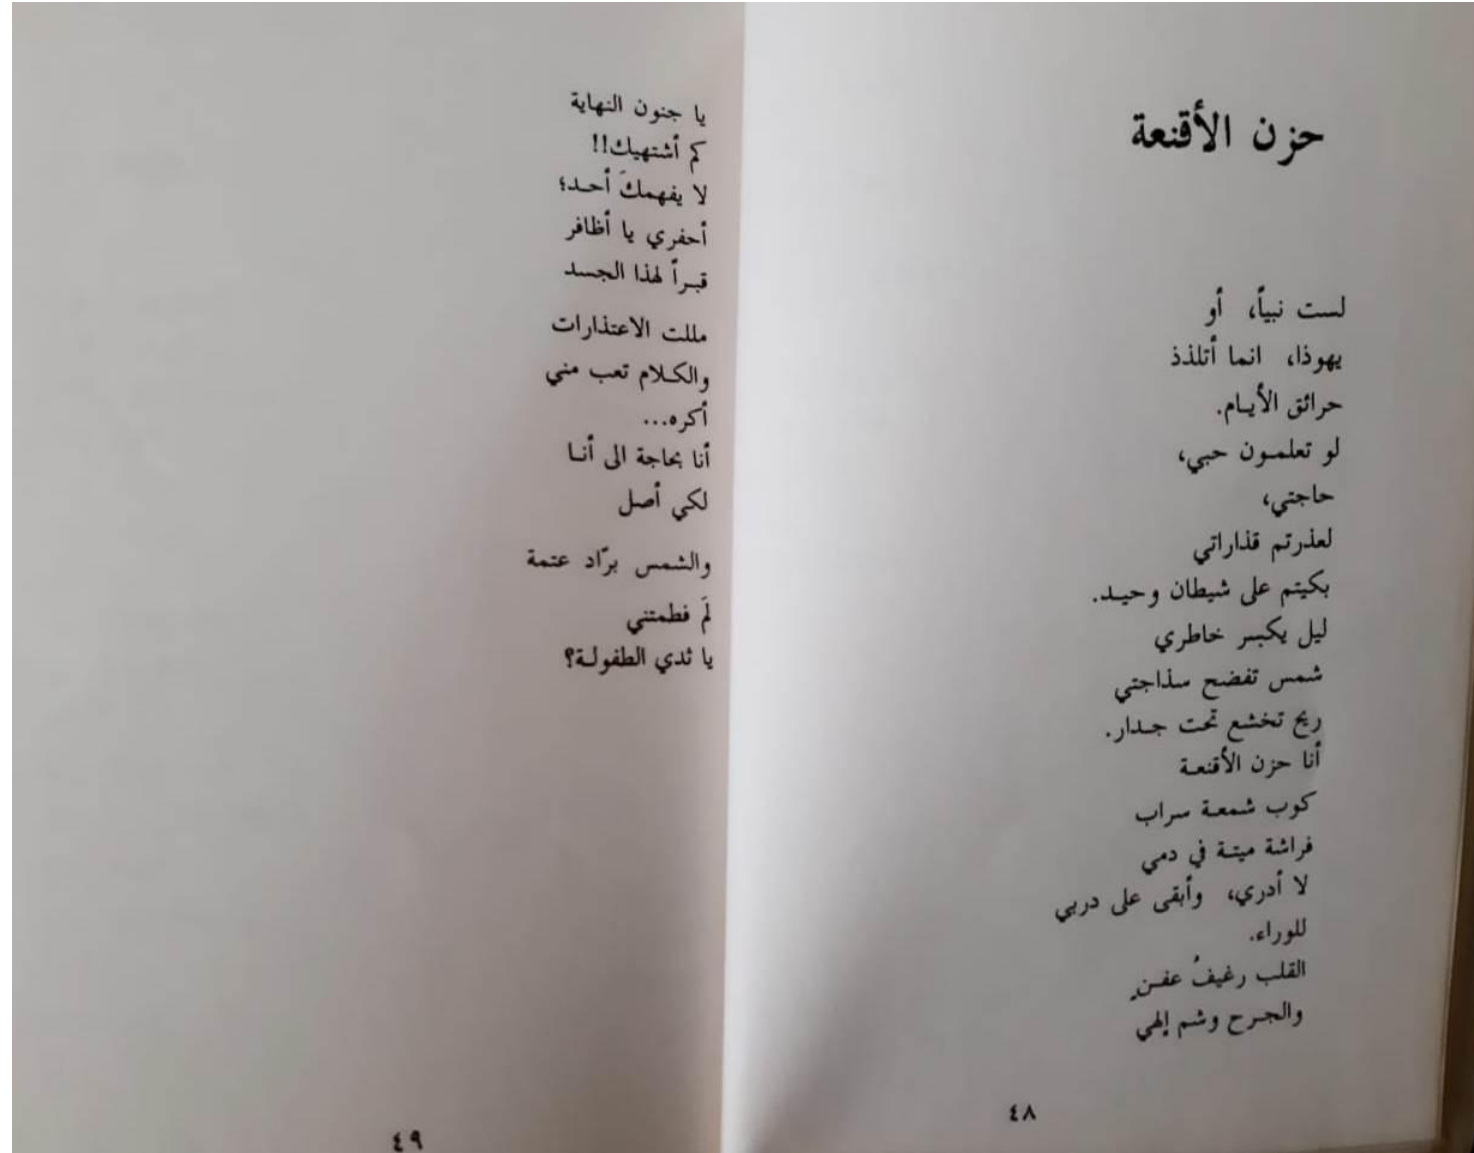 حزن الأقنعة
لست نبياً، أو
يهوذا، انما أتلذذ
حرائق الأيام.
لو تعلمون حبي،
حاجتي،
لعذرتم قذاراتي
بكيتم على شيطان وحيد.
ليل يكسر خاطري
شمس تفضح سذاجتي
ريح تخشع تحت جدار.
أنا حزن الأقنعة
كوب شمعة سراب
فراشة ميتة في دمي
لا أدري، وأبقى على دربي
للوراء.
القلب رغيفُ عفنٍ
والجرح وشم إلهي
٤٨
يا جنون النهاية
كم أشتهيك!!
لا يفهمكَ أحد؛
أحفري يا أظافر
قبراً لهذا الجسد
مللت الاعتذارات
والكلام تعب مني
أكره...
أنا بحاجة الى أنا
لكي أصل
والشمس برّاد عتمة
لمَ فطمتني
يا ثدي الطفولة؟
٤٩